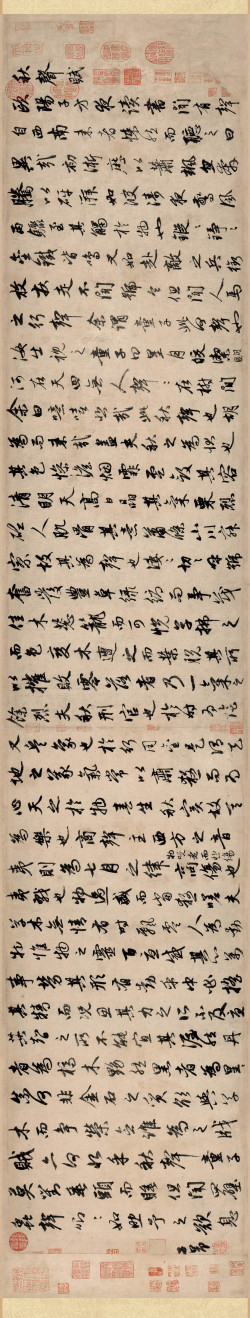 秋聲賦
歐陽子方夜讀書聞有聲
自西南來者悚然而聽之曰
異哉初淅瀝以蕭颯忽奔
騰以砰湃如波濤夜驚風
雨驟至其觸於物也鏦〻錚〻
金鐵皆鳴又如赴敵之兵銜
枚疾走不聞號令但聞人馬
之行聲余謂童子此何聲也
汝出視之童子曰星月皎潔明
河在天四無人聲〻在樹間
余曰噫嘻悲哉此秋聲也胡
為而來哉蓋夫秋之為狀也
其色慘澹煙霏雲斂其容
清明天高日晶其氣栗冽
砭人肌骨其意蕭條山川寂
寥故其為聲也淒〻切〻呼號
奮發豐草綠縟而爭茂
佳木葱蘢而可悅草拂之
而色變木遭之而葉脫其所
以摧敗零落者乃一氣之
餘烈夫秋刑官也於時為陰
又兵象也於行用金是謂天
地之義氣常以肅殺而為
心天之於物春生秋實故其
為樂也商聲主西方之音
夷則為七月之律商傷也物既老而悲傷
夷戮也物過盛而當殺嗟夫
草木無情有時飄零人為動
物惟物之靈百憂感其心萬
事勞其形有動乎中必搖
其精而況思其力之所不及憂
其智之所不能宜其渥然丹
者為槁木黟然黑者為星〻
奈何非金石之質欲與草
木而爭榮念誰為之戕
賊亦何恨乎秋聲童子
莫對垂頭而睡但聞四壁
蟲聲唧〻如助予之歎息
子昂